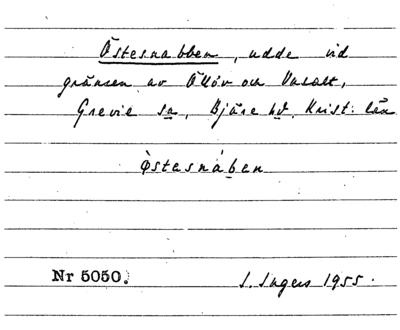 Östesnabben, udde vid
gränsen av Öllöv och Vasalt,
Grevie sn, Bjäre hd, Krist: län
östesnában
Nr 5050.
I. Ingers 1955.